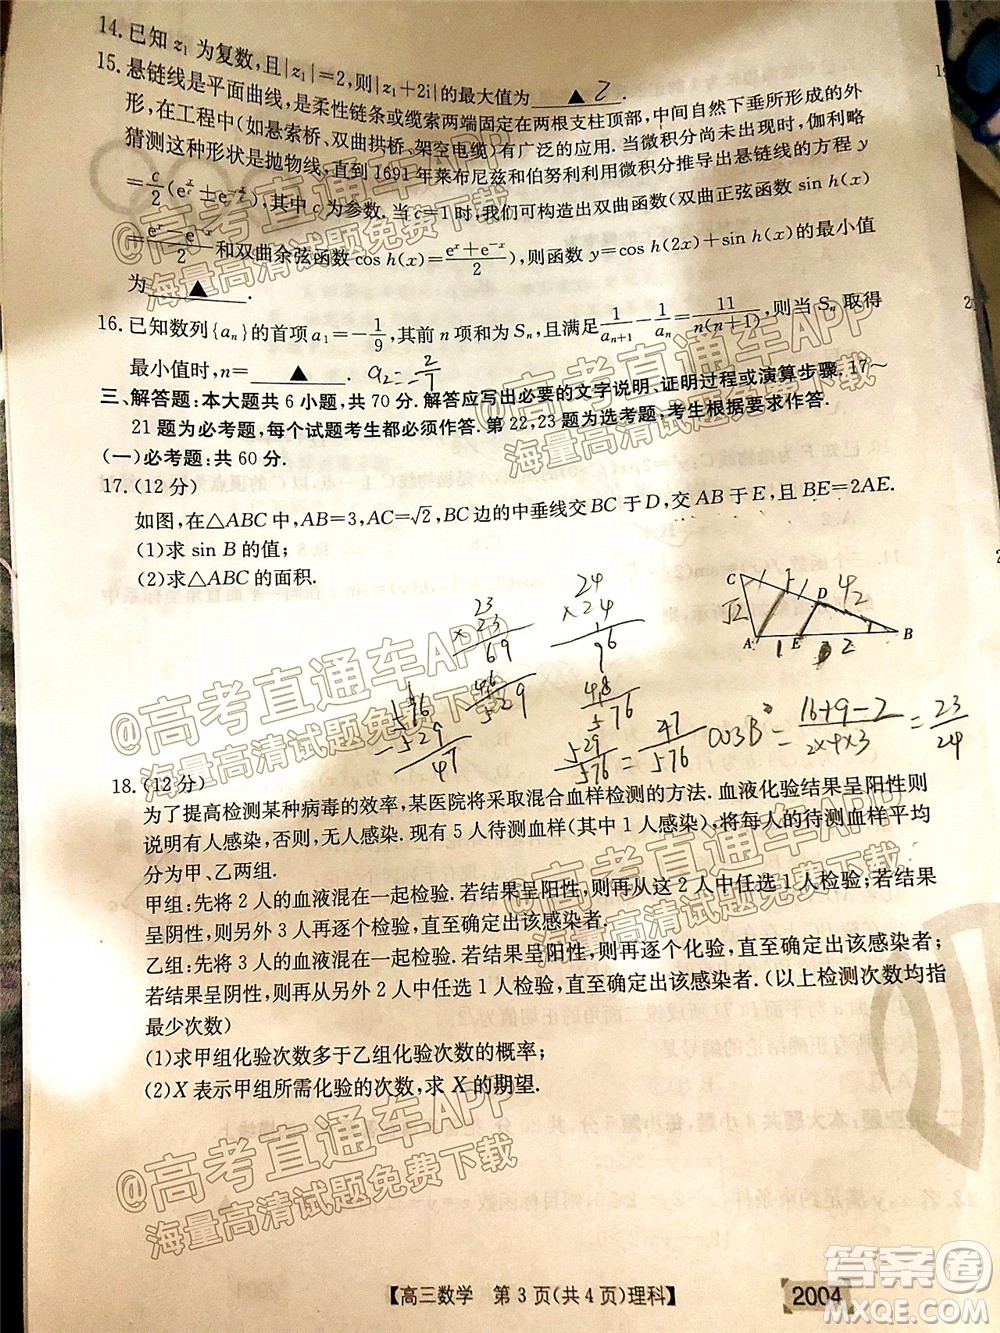 14. 已知 z₁ 为复数, 且|z₁|=2, 则|z₁+2i|的最大值为 ▲ 2 .
15. 悬链线是平面曲线, 是柔性链条或缆索两端固定在两根支柱顶部, 中间自然下垂所形成的外
形, 在工程中(如悬索桥、双曲拱桥、架空电缆)有广泛的应用. 当微积分尚未出现时, 伽利略
猜测这种形状是抛物线, 直到 1691 年莱布尼兹和伯努利利用微积分推导出悬链线的方程 y
=c/2(e^(x/c)+e^(-x/c)), 其中 c 为参数. 当 c=1 时, 我们可构造出双曲函数(双曲正弦函数 sin h(x)
=(e^x-e^(-x))/2 和双曲余弦函数 cos h(x)=(e^x+e^(-x))/2), 则函数 y=cos h(2x)+sin h(x)的最小值
为 ▲ .
16. 已知数列{aₙ}的首项 a₁=-1/9, 其前 n 项和为 Sₙ, 且满足 1/aₙ₊₁-1/aₙ=11/(n(n+1)), 则当 Sₙ 取得
最小值时, n= ▲ . a₂=-2/7
三、解答题:本大题共 6 小题, 共 70 分. 解答应写出必要的文字说明、证明过程或演算步骤. 17～
21 题为必考题, 每个试题考生都必须作答. 第 22,23 题为选考题, 考生根据要求作答.
(一)必考题:共 60 分.
17. (12 分)
如图, 在△ABC 中, AB=3, AC=√2, BC 边的中垂线交 BC 于 D, 交 AB 于 E, 且 BE=2AE.
(1)求 sin B 的值;
(2)求△ABC 的面积.
C
D
4
2
√2
A
E
B
1
2
23
×23
69
46
529
24
×24
96
48
576
576
-529
47
529/576=47/576
cosB=(16+9-2)/(2×4×3)=23/24
18. (12 分)
为了提高检测某种病毒的效率, 某医院将采取混合血样检测的方法. 血液化验结果呈阳性的
说明有人感染, 否则, 无人感染. 现有 5 人待测血样(其中 1 人感染), 将每人的待测血样平均
分为甲、乙两组.
甲组:先将 2 人的血液混在一起检验. 若结果呈阳性, 则再从这 2 人中任选 1 人检验; 若结果
呈阴性, 则另外 3 人再逐个检验, 直至确定出该感染者.
乙组:先将 3 人的血液混在一起检验. 若结果呈阳性, 则再逐个化验, 直至确定出该感染者;
若结果呈阴性, 则再从另外 2 人中任选 1 人检验, 直至确定出该感染者. (以上检测次数均指
最少次数)
(1)求甲组化验次数多于乙组化验次数的概率;
(2)X 表示甲组所需化验的次数, 求 X 的期望.
@高考直通车APP
海量高清试题免费下载
@高考直通车APP
海量高清试题免费下载
@高考直通车APP
海量高清试题免费下载
@高考直通车APP
海量高清试题免费下载
@高考直通车APP
海量高清试题免费下载
【高三数学 第 3 页(共 4 页)理科】
2004
答案圈
MXQE.COM